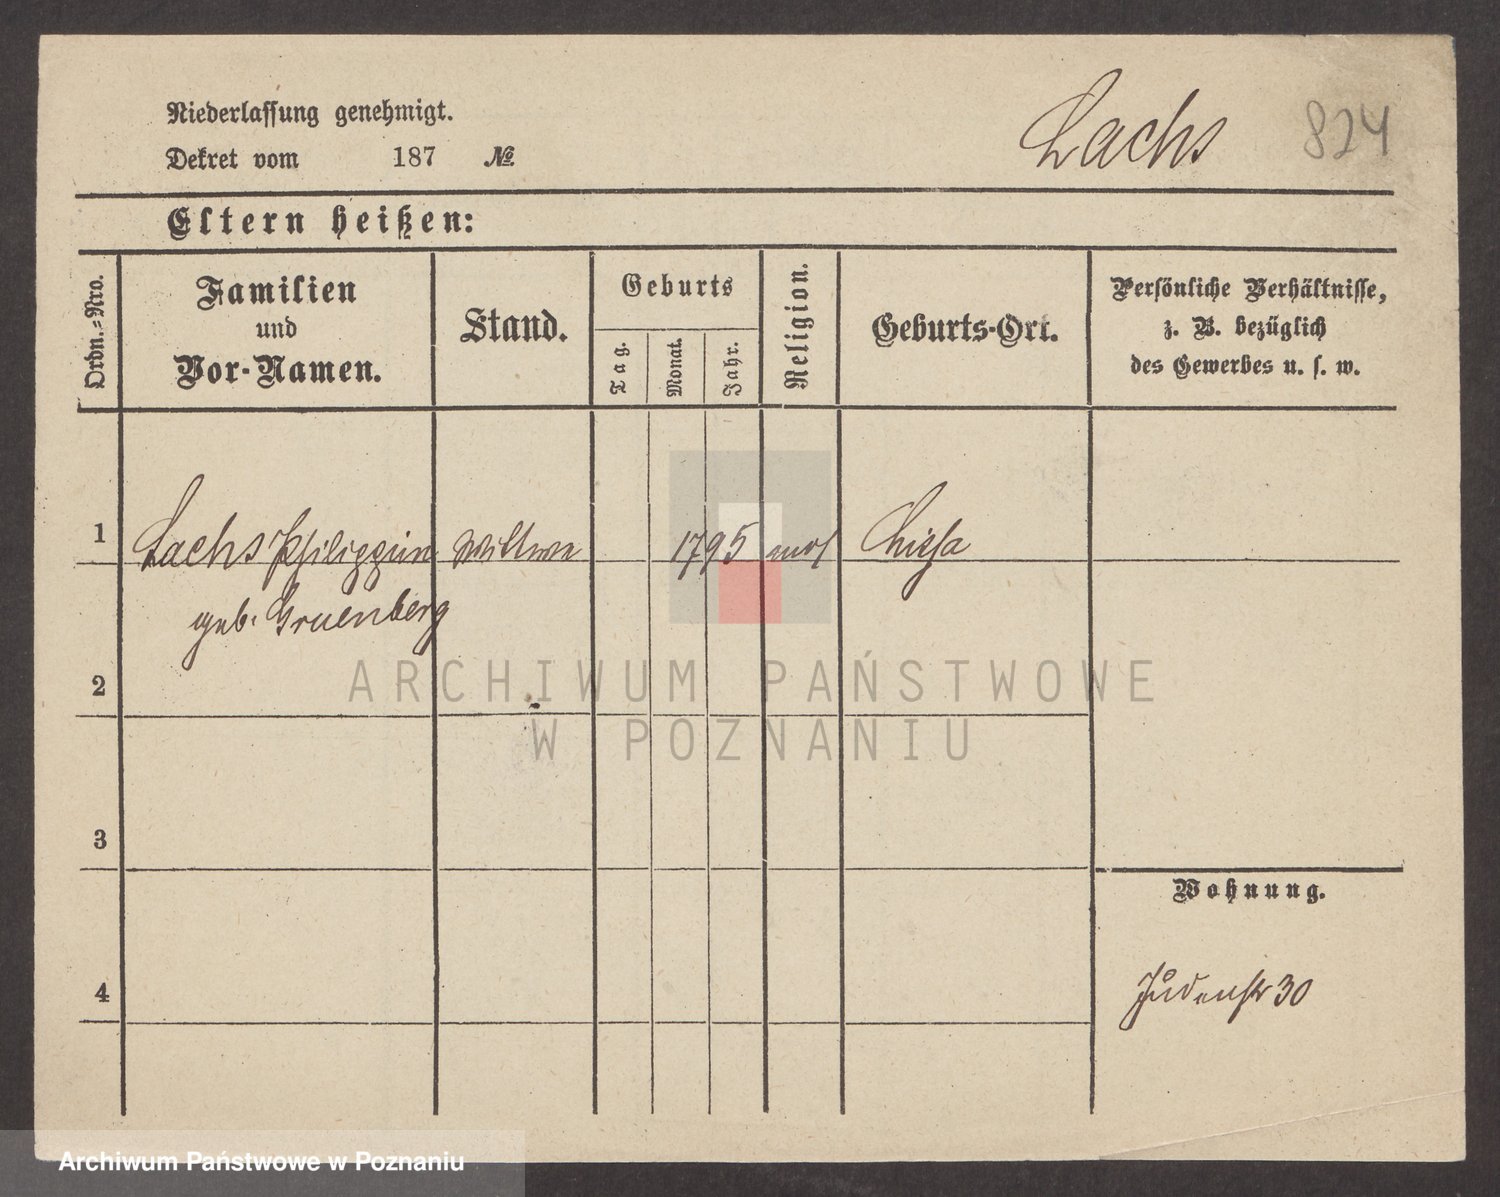 Niederlassung genehmigt.
Lachs 824
Dekret vom 187 №.
Eltern heißen:
Ordn.-Nro.
Familien
und
Vor-Namen.
Stand.
Geburts
Tag.
Monat.
Jahr.
Religion.
Geburts-Ort.
Persönliche Verhältnisse,
z. B. bezüglich
des Gewerbes u. s. w.
1 Lachs Philippine Wittwe 1795 mos Lissa
geb. Gruenberg
2
3
Wohnung.
4 Judenstr 30
ARCHIWUM PAŃSTWOWE
W POZNANIU
Archiwum Państwowe w Poznaniu